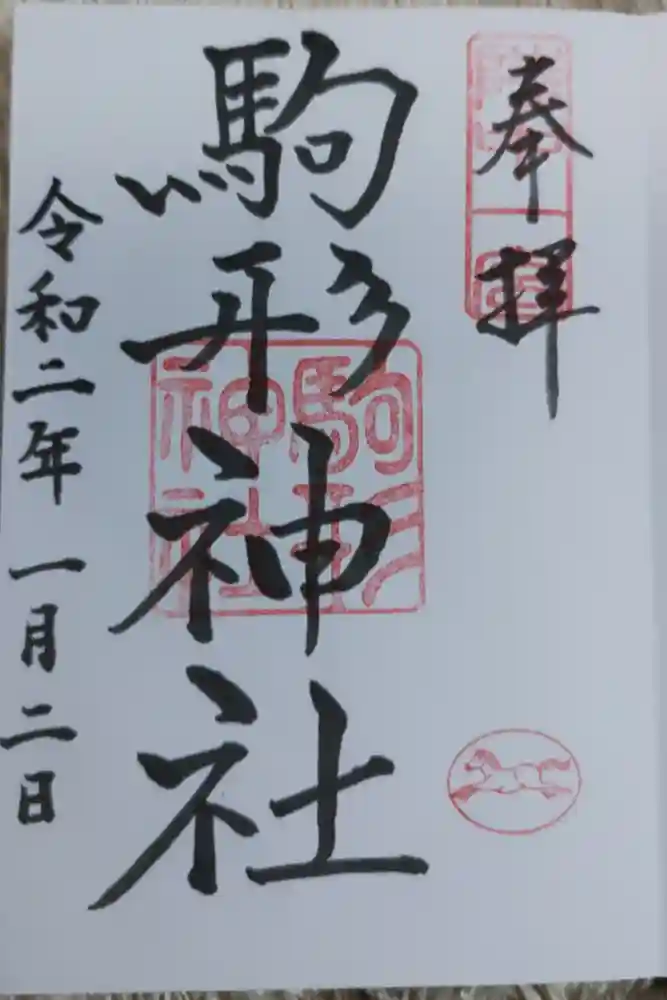 奉拝
駒形神社
駒形神社
令和二年一月二日